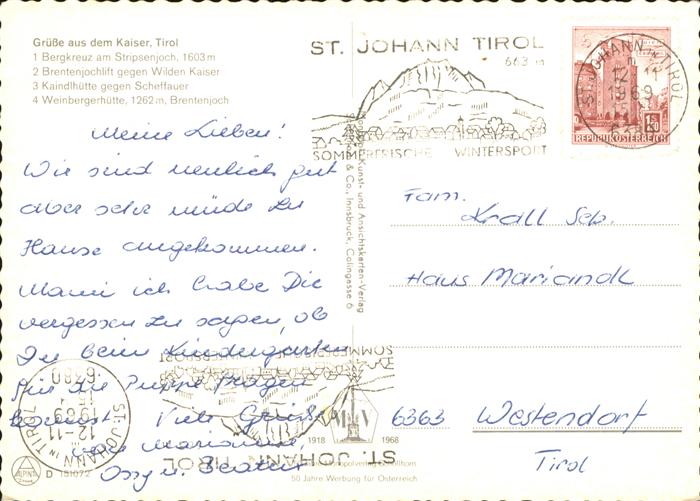 Grüße aus dem Kaiser, Tirol
1 Bergkreuz am Stripsenjoch, 1603 m
2 Brentenjochlift gegen Wilden Kaiser
3 Kaindlhütte gegen Scheffauer
4 Weinbergerhütte, 1262 m, Brentenjoch
Meine Lieben!
Wir sind neulich gut
aber sehr müde zu
Hause angekommen.
Mami ich habe Dir
vergessen zu sagen, ob
Du beim Kindergarten
für die Puppe fragen
kannst. Viele Grüße
von Marianne
D 151072
ST. JOHANN TIROL
663 m
SOMMERFRISCHE WINTERSPORT
ST. JOHANN IN TIROL
1969
REPUBLIK ÖSTERREICH
Kunst- und Ansichtskarten-Verlag
& Co., Innsbruck, Colingasse 6
Fam.
Krall Seb.
Haus Mariandl
6363 Westendorf
Tirol
ST. JOHANN TIROL
SOMMERFRISCHE WINTERSPORT
ST. JOHANN IN TIROL
12-11
1969
6380
1918 1968
50 Jahre Werbung für Österreich